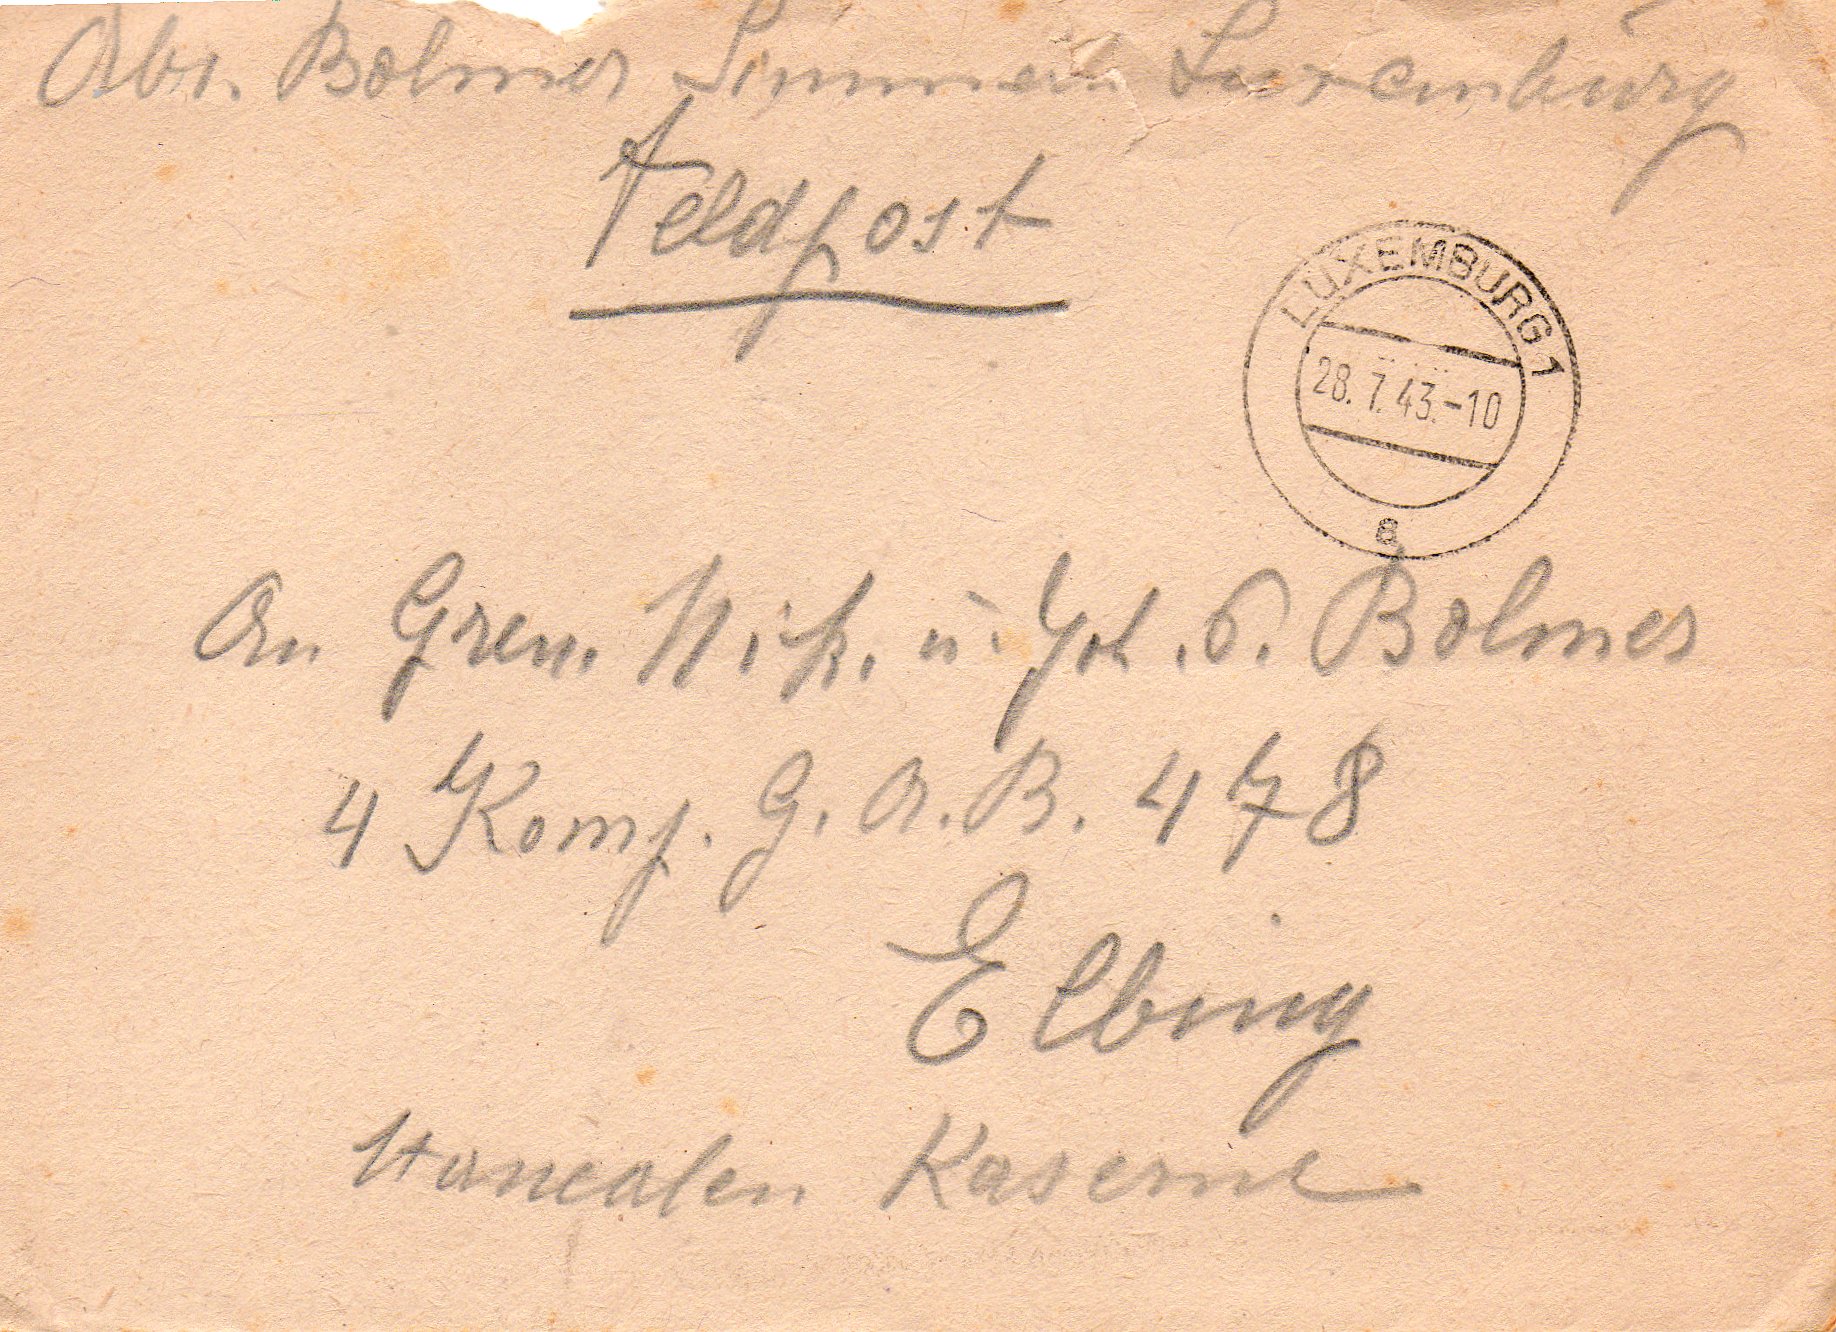 Abs. Bolmer Simmern Luxemburg
Feldpost
LUXEMBURG 1
28.7.43.-10
a
An Gren. Nik. u. Joh. 6. Bolmer
4 Komp. G. A. B. 478
Elbing
Kaserne